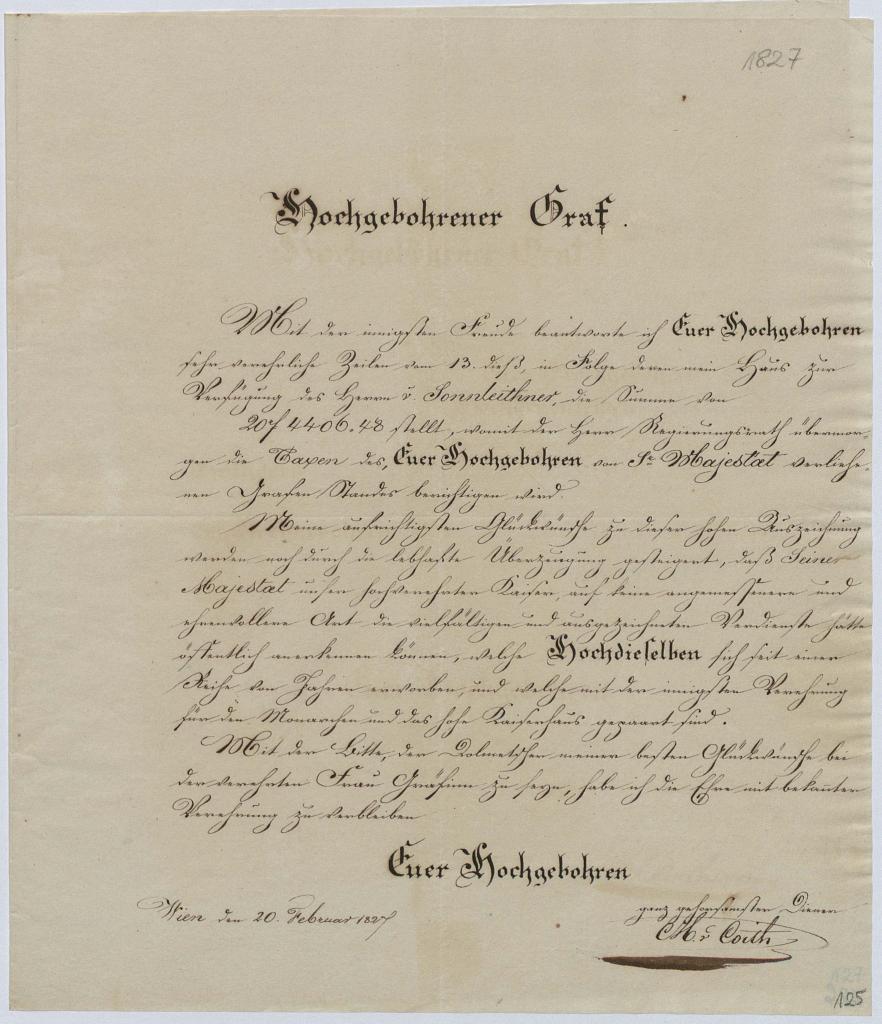 1827
Hochgebohrener Graf.
Mit der innigsten Freude beantworte ich Euer Hochgebohren
sehr verehrliche Zeilen vom 13. dieß, in Folge deren mein Haus zur
Verfügung des Herrn v. Sonnleithner, die Summe von
4406.48 stellt, womit der Herr Regierungsrath übermor-
gen die Taxen des, Euer Hochgebohren von Sr. Majestät verliehe-
nen Grafen Standes berichtigen wird.
Meine aufrichtigsten Glückwünsche zu dieser hohen Auszeichnung
werden noch durch die lebhafte Überzeugung gesteigert, daß Seiner
Majestæt unser hochverehrter Kaiser, auf keine angemessenere und
ehrenvollere Art die vielfältigen und ausgezeichneten Verdienste hätte
öffentlich anerkennen können, welche Hochdieselben sich seit einer
Reihe von Jahren erworben, und welche mit der innigsten Verehrung
für den Monarchen und das hohe Kaiserhaus gepaart sind.
Mit der Bitte, der Dolmetscher meiner besten Glückwünsche bei
der verehrten Frau Gräfinn zu seyn, habe ich die Ehre mit bekannter
Verehrung zu verbleiben
Euer Hochgebohren
Wien den 20. Februar 1827
ganz gehorsamster Diener
v. Coith
127
125